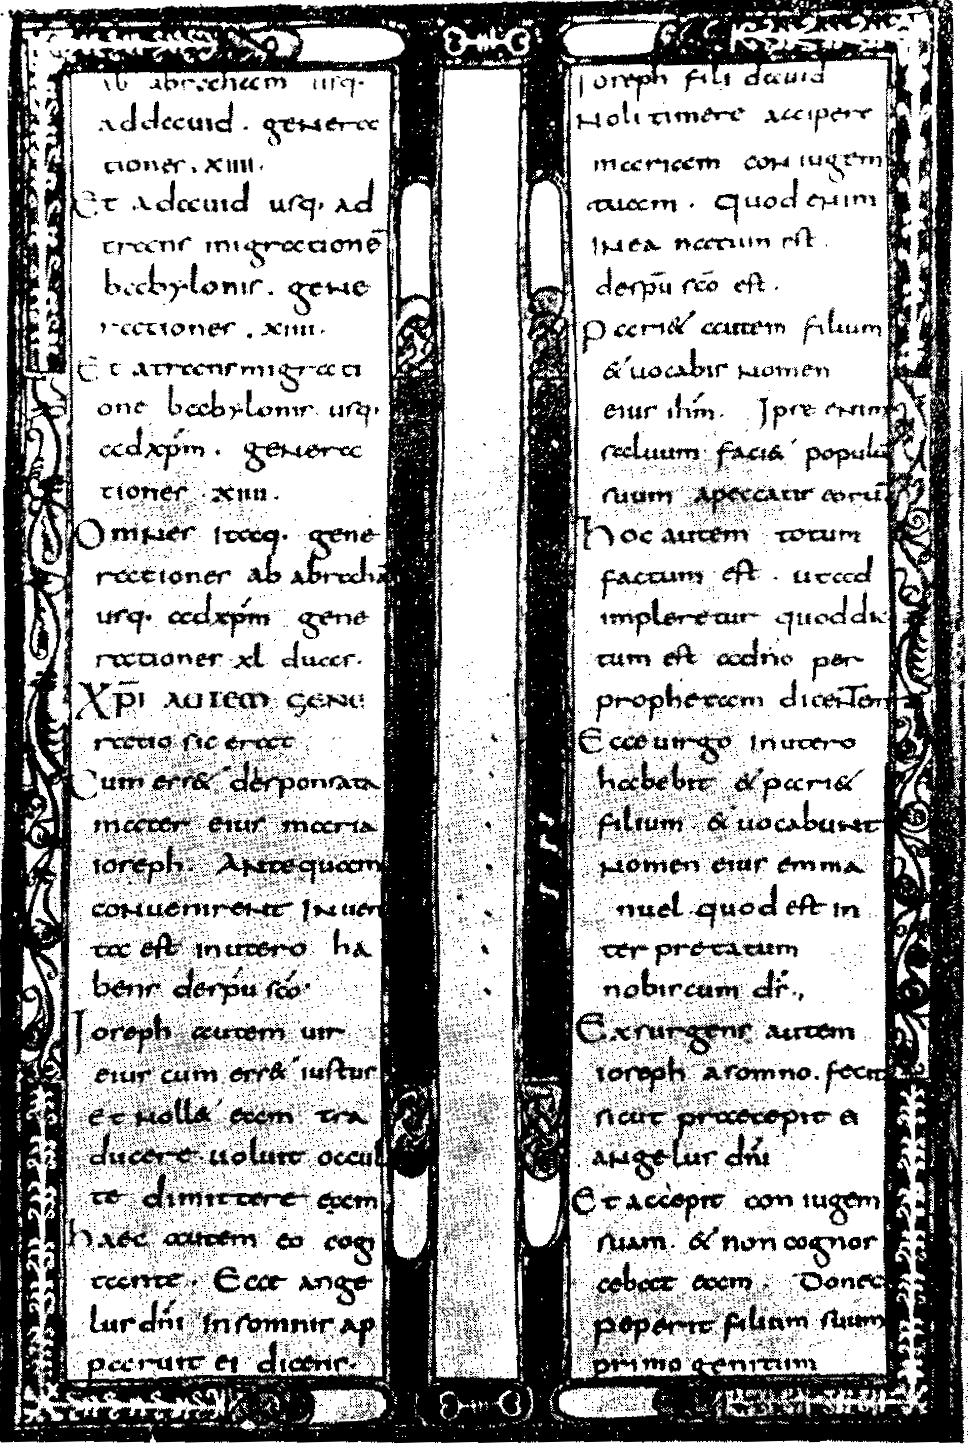 ab abracham usq·
addauid . genera
tiones . xiiii .
Et adauid usq· ad
trans migrationē
babylonis . gene
rationes . xiiii .
Et atransmigrati
one babylonis usq·
adxp̄m . genera
tiones xiiii .
Omnes itaq· gene
rationes ab abrahā
usq· adxp̄m gene
rationes xl duas .
Xp̄i autem gene
ratio sic erat
Cum ess& desponsata
mater eius maria
ioseph . Antequam
conuenirent Inuen
ta est inutero ha
bens desp̄u sc̄o
Ioseph autem uir
eius cum ess& iustus
et noll& eam tra
ducere uoluit occul
te dimittere eam
haec autem eo cogi
tante . Ecce ange
lus dn̄i Insomnis ap
paruit ei dicens .
Ioseph fili dauid
Noli timere accipere
mariam con iugem
tuam . Quod enim
INea natum est .
desp̄u sc̄o est .
Pari& autem filium
& uocabis nomen
eius ih̄m . Ipse enim
saluum faci& populū
suum apeccatis eorū
Hoc autem totum
factum est . utad
impleretur quoddic
tum est adn̄o per
prophetam dicentem
Ecce uirgo Inutero
habebit & pari&
filium & uocabunt
nomen eius emma
nuel quod est in
ter pretatum
nobiscum dr̄ .,
Exsurgens autem
ioseph asomno . fecit
sicut praecepit ei
angelus dn̄i
Et accepit con iugem
suam . & non cognos
cebat eam . Donec
peperit filium suum
primo genitum